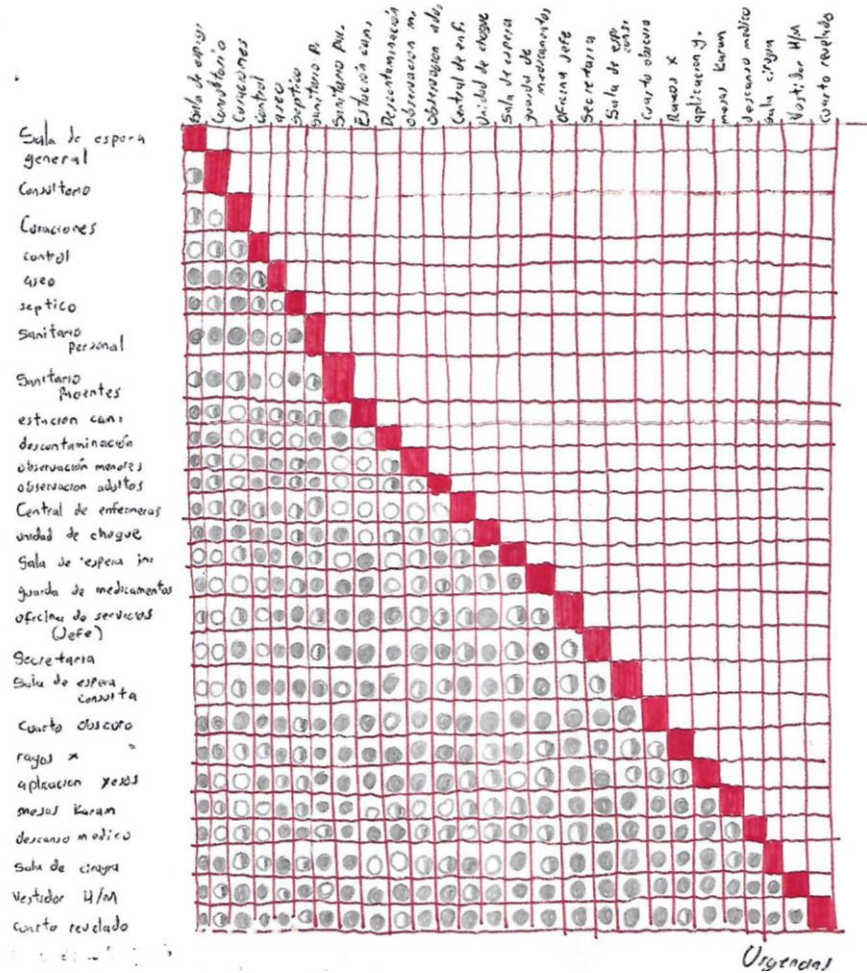 Sala de espega
Consultorio
Curaciones
control
aseo
Septico
Sanitario P.
Sanitario pac.
Estación cam.
Descontaminación
observacion m.
observacion ados
Central de enf.
Unidad de choque
Sala de espera
guarda de
medicamentos
Oficina Jefe
Secretaria
Sala de esp.
cons.
Cuarto obscuro
Rayos X
aplicacion y.
mesas Karam
descanso medico
Sala cirugia
Vestidor H/M
Cuarto revelado
Sala de espera
general
Consultorio
Curaciones
control
aseo
septico
Sanitario
personal
Sanitario
Pacientes
estacion cam.
descontaminación
observación menores
observacion adultos
Central de enfermeras
unidad de choque
Sala de espera in
guarda de medicamentos
oficina de servicios
(Jefe)
Secretaria
Sala de espera
consulta
cuarto obscuro
rayos x
aplicacion yesos
mesas Karam
descanso medico
Sala de cirugia
Vestidor H/M
cuarto revelado
Urgencias